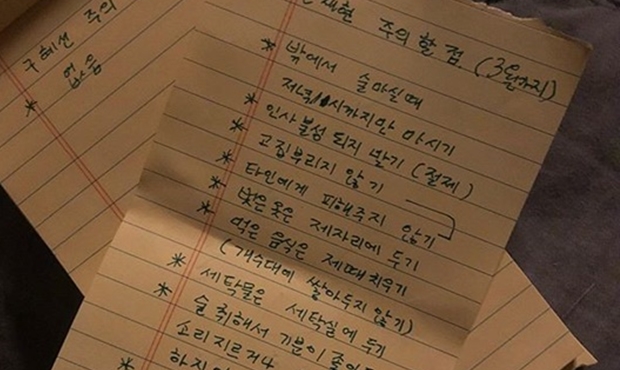 구혜선 주의
* 없음
재현 주의할 점 (3월까지)
* 밖에서 술마실때
저녁 시까지만 마시기
* 인사불성 되지 말기 (절제)
* 고집부리지 않기
* 타인에게 피해주지 않기
* 벗은 옷은 제자리에 두기
* 먹은 음식은 제때치우기
(개수대에 쌓아두지 않기)
* 세탁물은 세탁실에 두기
* 술 취해서 기분이
소리지르거나
*